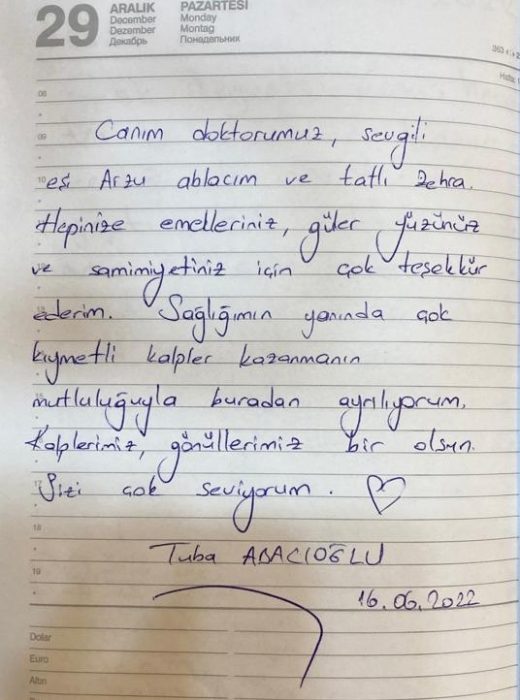 29
ARALIK PAZARTESİ
December Monday
Dezember Montag
Декабрь Понедельник
08
09 Canım doktorumuz, sevgili
10 eşi Arzu ablacım ve tatlı Zehra.
Hepinize emelleriniz, güler yüzünüz
ve samimiyetiniz için çok teşekkür
ederim. Sağlığımın yanında çok
kıymetli kalpler kazanmanın
mutluluğuyla buradan ayrılıyorum.
Kalplerimiz, gönüllerimiz bir olsun.
17 Sizi çok seviyorum. ♡
18
Tuba ABACIOĞLU
19
16.06.2022
Dolar
Euro
Altın